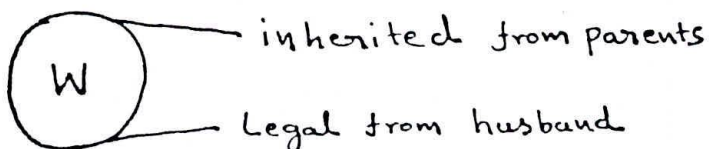 inherited from parents
W
Legal from husband